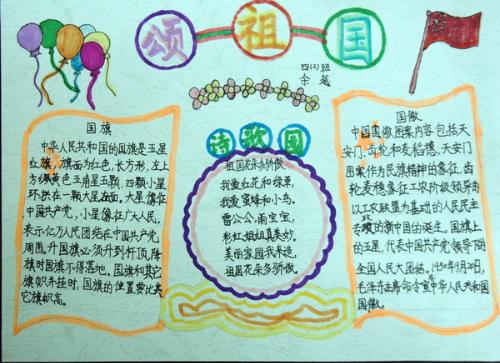 颂祖国
四(2)班
余越
国旗
中华人民共和国的国旗是五星
红旗，旗面为红色，长方形，左上
方缀黄色五角星五颗，四颗小星
环拱在一颗大星右面。大星像征
中国共产党，小星像征广大人民，
表示亿万人民团结在中国共产党
周围。升国旗必须升到杆顶，降
旗时国旗不得落地。国旗和其它
旗帜并挂时，国旗的位置要比其
它旗帜高。
诗歌园
祖国花朵多骄傲
我爱红花和绿草，
我爱蜜蜂和小鸟，
雷公公，雨宝宝，
彩虹姐姐真美妙。
美丽家园我来造，
祖国花朵多骄傲。
国徽
中国国徽图案内容包括天
安门、齿轮和麦稻穗，天安门
图案作为民族精神的象征，齿
轮麦穗象征工人阶级领导的
以工农联盟为基础的人民民主
专政的新中国的诞生。国旗上
的五星，代表中国共产党领导下的
全国人民大团结。1950年9月20日，
毛泽东主席命令宣中华人民共和国
国徽。